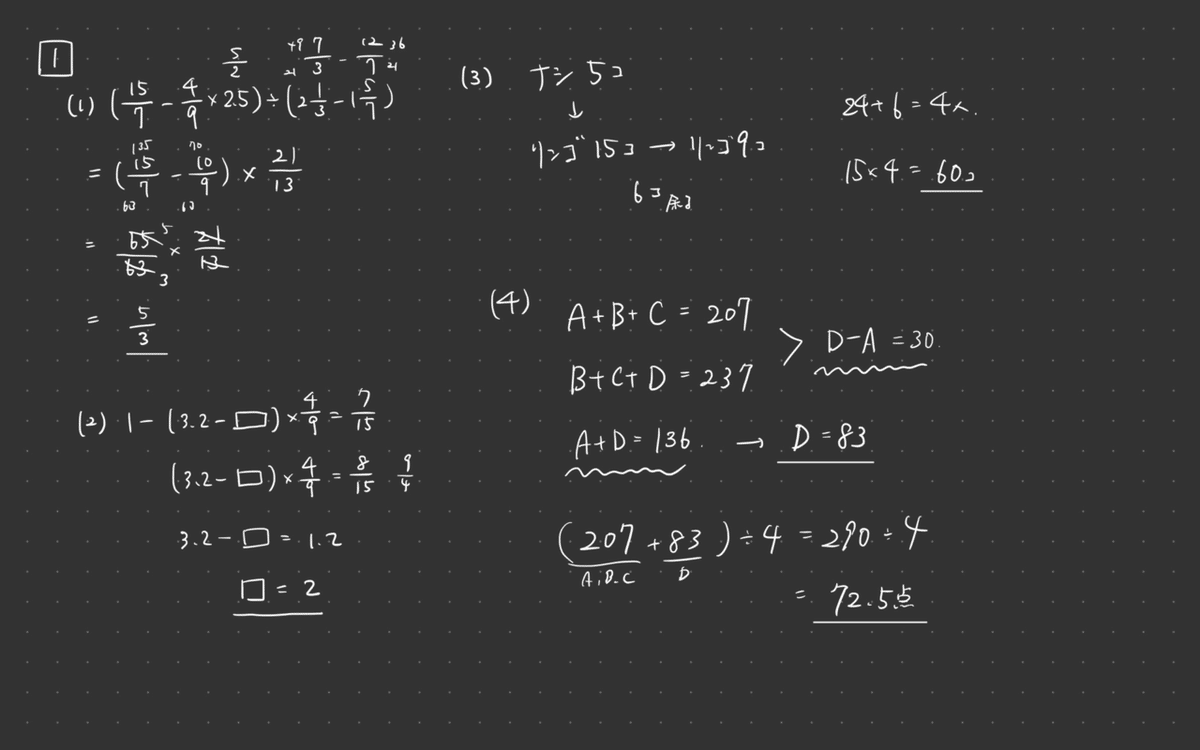 1
5/2 49/21 7/3 - 12/7 36/21
(1) (15/7 - 4/9 × 2.5) ÷ (2 1/3 - 1 5/7)
= (15/7 - 10/9) × 21/13
135 70
63 63
= 65/63 × 21/13
5 3
= 5/3
(2) 1 - (3.2 - □) × 4/9 = 7/15
(3.2 - □) × 4/9 = 8/15 9/4
3.2 - □ = 1.2
□ = 2
(3) ナシ 5コ
↓
リンゴ 15コ → リンゴ 9コ
6コ余る
24 ÷ 6 = 4人.
15 × 4 = 60コ
(4) A + B + C = 207
B + C + D = 237
> D - A = 30.
A + D = 136. → D = 83
(207 + 83) ÷ 4 = 290 ÷ 4
A.B.C D
= 72.5点